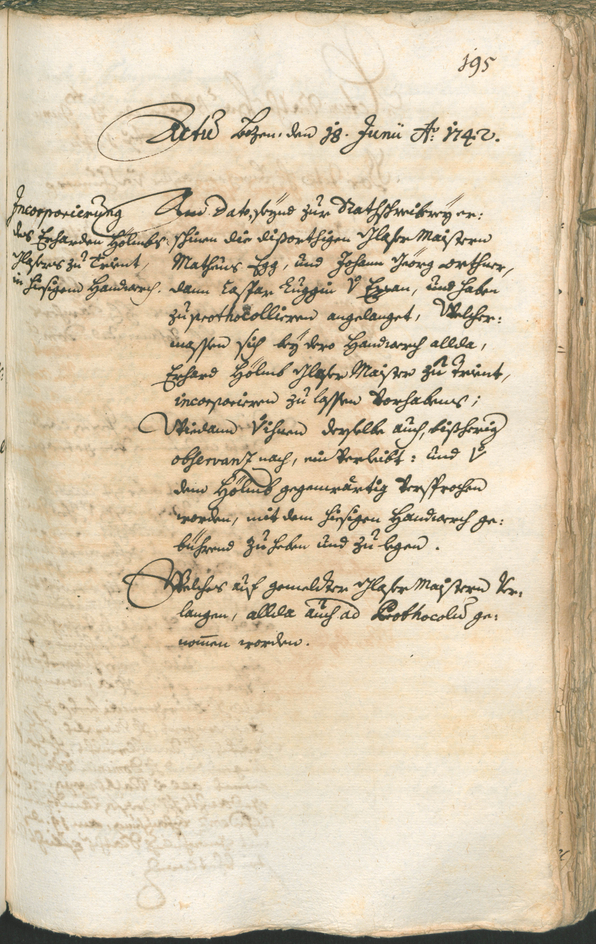 195
Actũ Bozen, den 18. Junii Aº: 1742.
Incorporierung
des Erharden Hölmbs
Glasers zu Trient,
in hiesigem Handwerch.
Am dato, seynd zur Rathschreiberey er:
schinen die dißorthigen Glaser Maistern
Matheus Egg, und Johann Georg
dann Caspar V Eppan, und haben
zuprothocollieren angelanget, Welcher:
massen sich bey dero Handwerch allda,
Erhard Hölmb Glaser Maister zu Trient,
incorporieren zu lassen Vorhabens;
Wiedann Vihnen derselbe auch, bißherig
observanz nach, ein Verleibt: und V
dem Hölmb gegenwärtig Versprochen
worden, mit dem hiesigen Handwerch ge:
bührend zu heben und zu legen.
Welches auf gemelter Glaser Maistern Ver:
langen, allda auch ad Prothocolũ ge:
nom̃en worden.